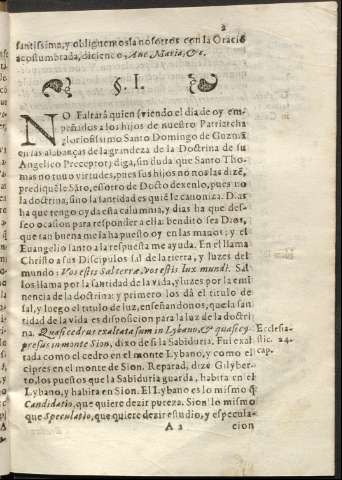 2
santissima, y obliguemosla nosotros con la Oraciõ
acostumbrada, diciendo, Ave Maria, &c.
§. I.
NO Faltará quien viendo el dia de oy em-
peñados a los hijos de nuestro Patriarcha
gloriosissimo Santo Domingo de Guzmã
en las alabanças de la grandeza de la Doctrina de su
Angelico Preceptor; diga, sin duda que Santo Tho-
mas no tuvo virtudes, pues sus hijos no nos las dizẽ,
la doctrina, sino la santidad es quiẽ le canoniza. Dias
ha que tengo oyda esta calumnia, y dias ha que des-
seo ocasion para responder a ella: bendito sea Dios,
que tan buena me la ha puesto oy en las manos; y el
Euangelio santo a la respuesta me ayuda. En el llama
Christo a sus Discipulos sal de la tierra, y luzes del
mundo: Vos estis Sal terræ, vos estis lux mundi. Sal
los llama por la santidad de la vida, y luzes por la emi
nencia de la doctrina: y primero los dà el titulo de
sal, y luego el titulo de luz, enseñandonos, que la san
tidad de la vida es disposicion para la luz de la doctri
na. Quasi cedrus exaltata sum in Lybano, & quasi cy-
pressus in monte Sion, dixo de si la Sabiduria. Fui exal
tada como el cedro en el monte Lybano, y como el
cipres en el monte de Sion. Reparad, dize Gilyber-
to, los puestos que la Sabiduria guarda, habita en el
Lybano, y habita en Sion. El Lybano es lo mismo q̃
Candidatio, que quiere dezir pureza. Sion lo mismo
que Speculatio, que quiere dezir estudio, y especula-
A 2
cion
Ecclesia-
stic. 24.
cap.